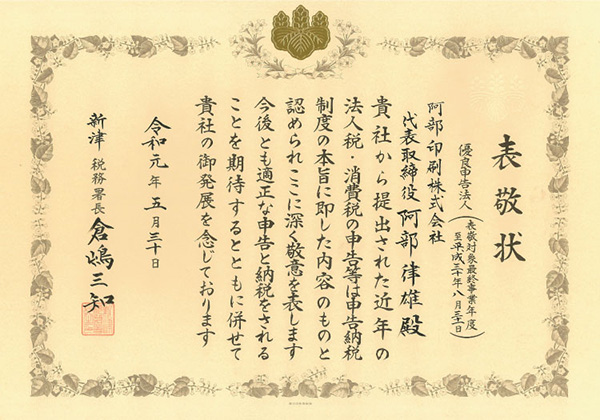 表敬状
優良申告法人
(表敬対象最終事業年度
至平成三十年八月三十一日)
阿部印刷株式会社
代表取締役 阿部律雄殿
貴社から提出された近年の
法人税・消費税の申告等は申告納税
制度の本旨に即した内容のものと
認められここに深く敬意を表します
今後とも適正な申告と納税をされる
ことを期待するとともに併せて
貴社の御発展を念じております
令和元年五月三十日
新津税務署長 倉嶋三知